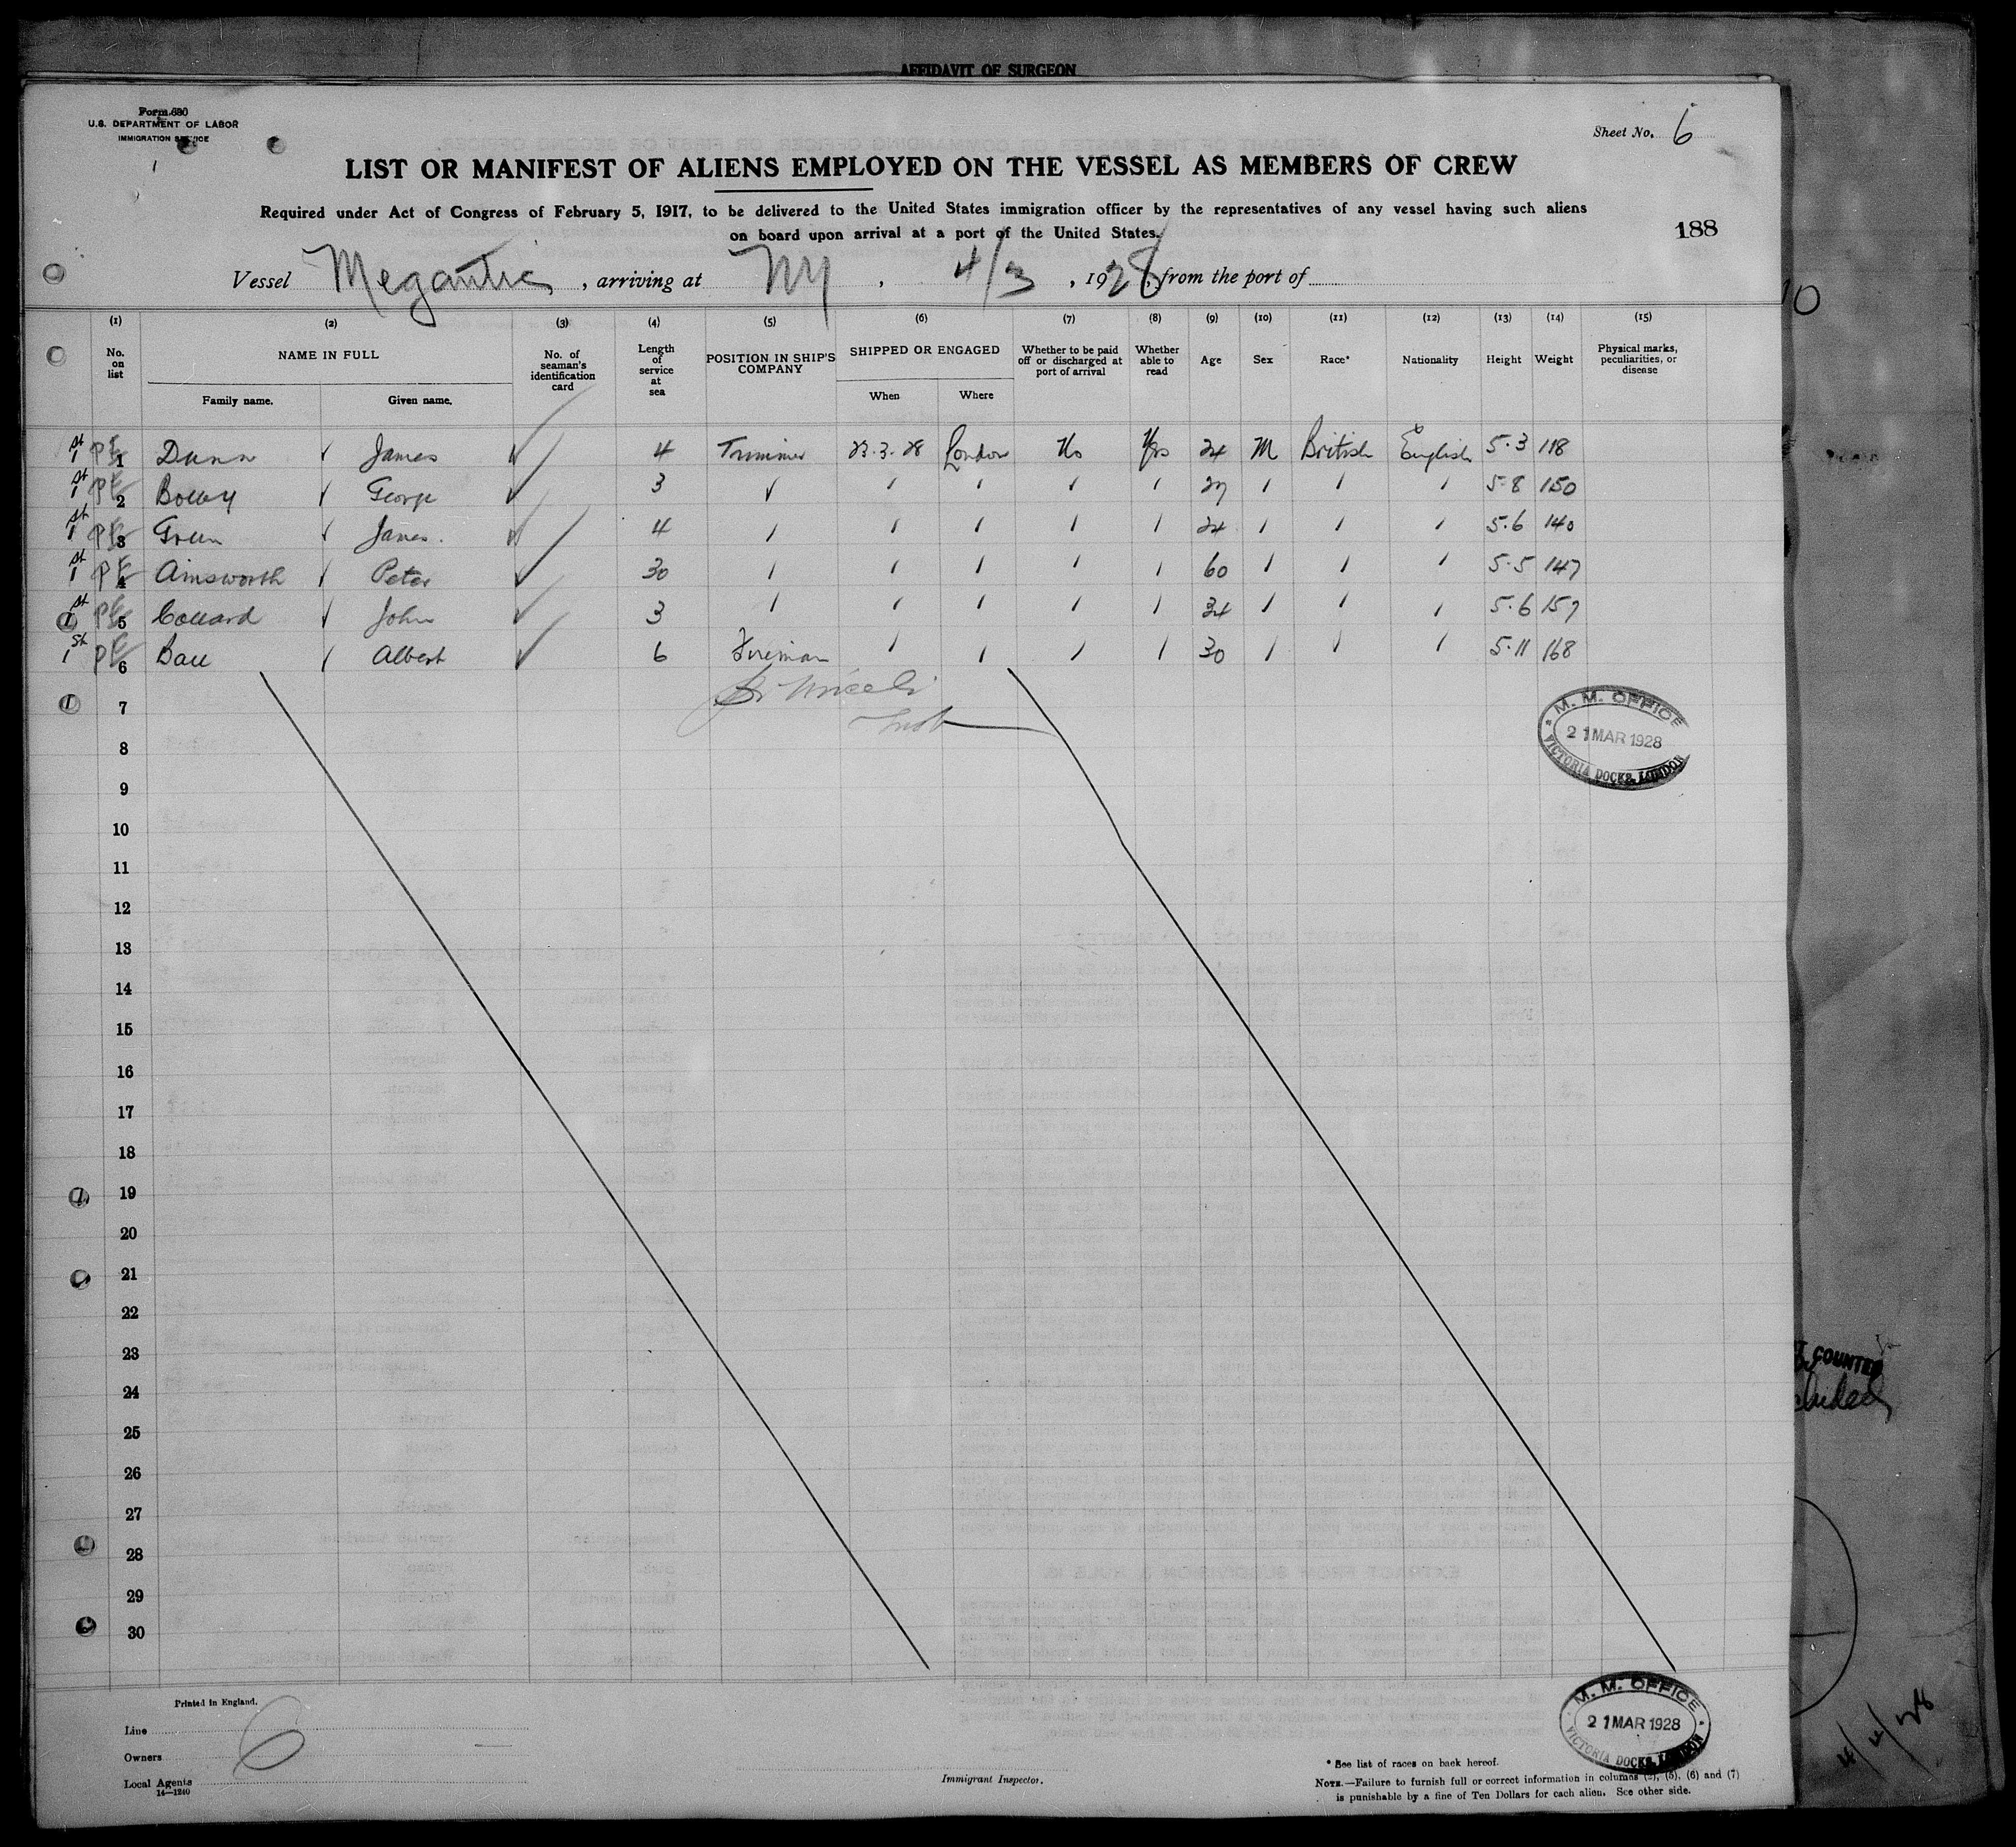 AFFIDAVIT OF SURGEON
Form 680
U.S. DEPARTMENT OF LABOR
IMMIGRATION SERVICE
Sheet No. 6
LIST OR MANIFEST OF ALIENS EMPLOYED ON THE VESSEL AS MEMBERS OF CREW
Required under Act of Congress of February 5, 1917, to be delivered to the United States immigration officer by the representatives of any vessel having such aliens
on board upon arrival at a port of the United States.
188
Vessel Megantic, arriving at NY, 4/3, 1928, from the port of
(1) (2) (3) (4) (5) (6) (7) (8) (9) (10) (11) (12) (13) (14) (15)
No. on list NAME IN FULL No. of seaman's identification card Length of service at sea POSITION IN SHIP'S COMPANY SHIPPED OR ENGAGED Whether to be paid off or discharged at port of arrival Whether able to read Age Sex Race* Nationality Height Weight Physical marks, peculiarities, or disease
Family name. Given name. When Where
1st 1 Dunn James 4 Trimmer 23.3.28 London No Yes 24 M British English 5.3 118
1st 2 George 3 27 5.8 150
1st 3 Green James. 4 24 5.6 140
1st 4 Ainsworth Peter 30 60 5.5 147
1st 5 Collard John 3 34 5.6 157
1st 6 Ball Albert 6 Fireman 30 5.11 168
7
M. M. OFFICE
21 MAR 1928
VICTORIA DOCKS, LONDON
8
9
10
11
12
13
14
15
16
17
18
19
20
21
22
23
24
25
26
27
28
29
30
COUNTED
Printed in England.
Line
Owners
Local Agents
14—1240
6
Immigrant Inspector.
M. M. OFFICE
21 MAR 1928
VICTORIA DOCKS, LONDON
* See list of races on back hereof.
NOTE.—Failure to furnish full or correct information in columns (2), (5), (6) and (7)
is punishable by a fine of Ten Dollars for each alien. See other side.
4/4/28